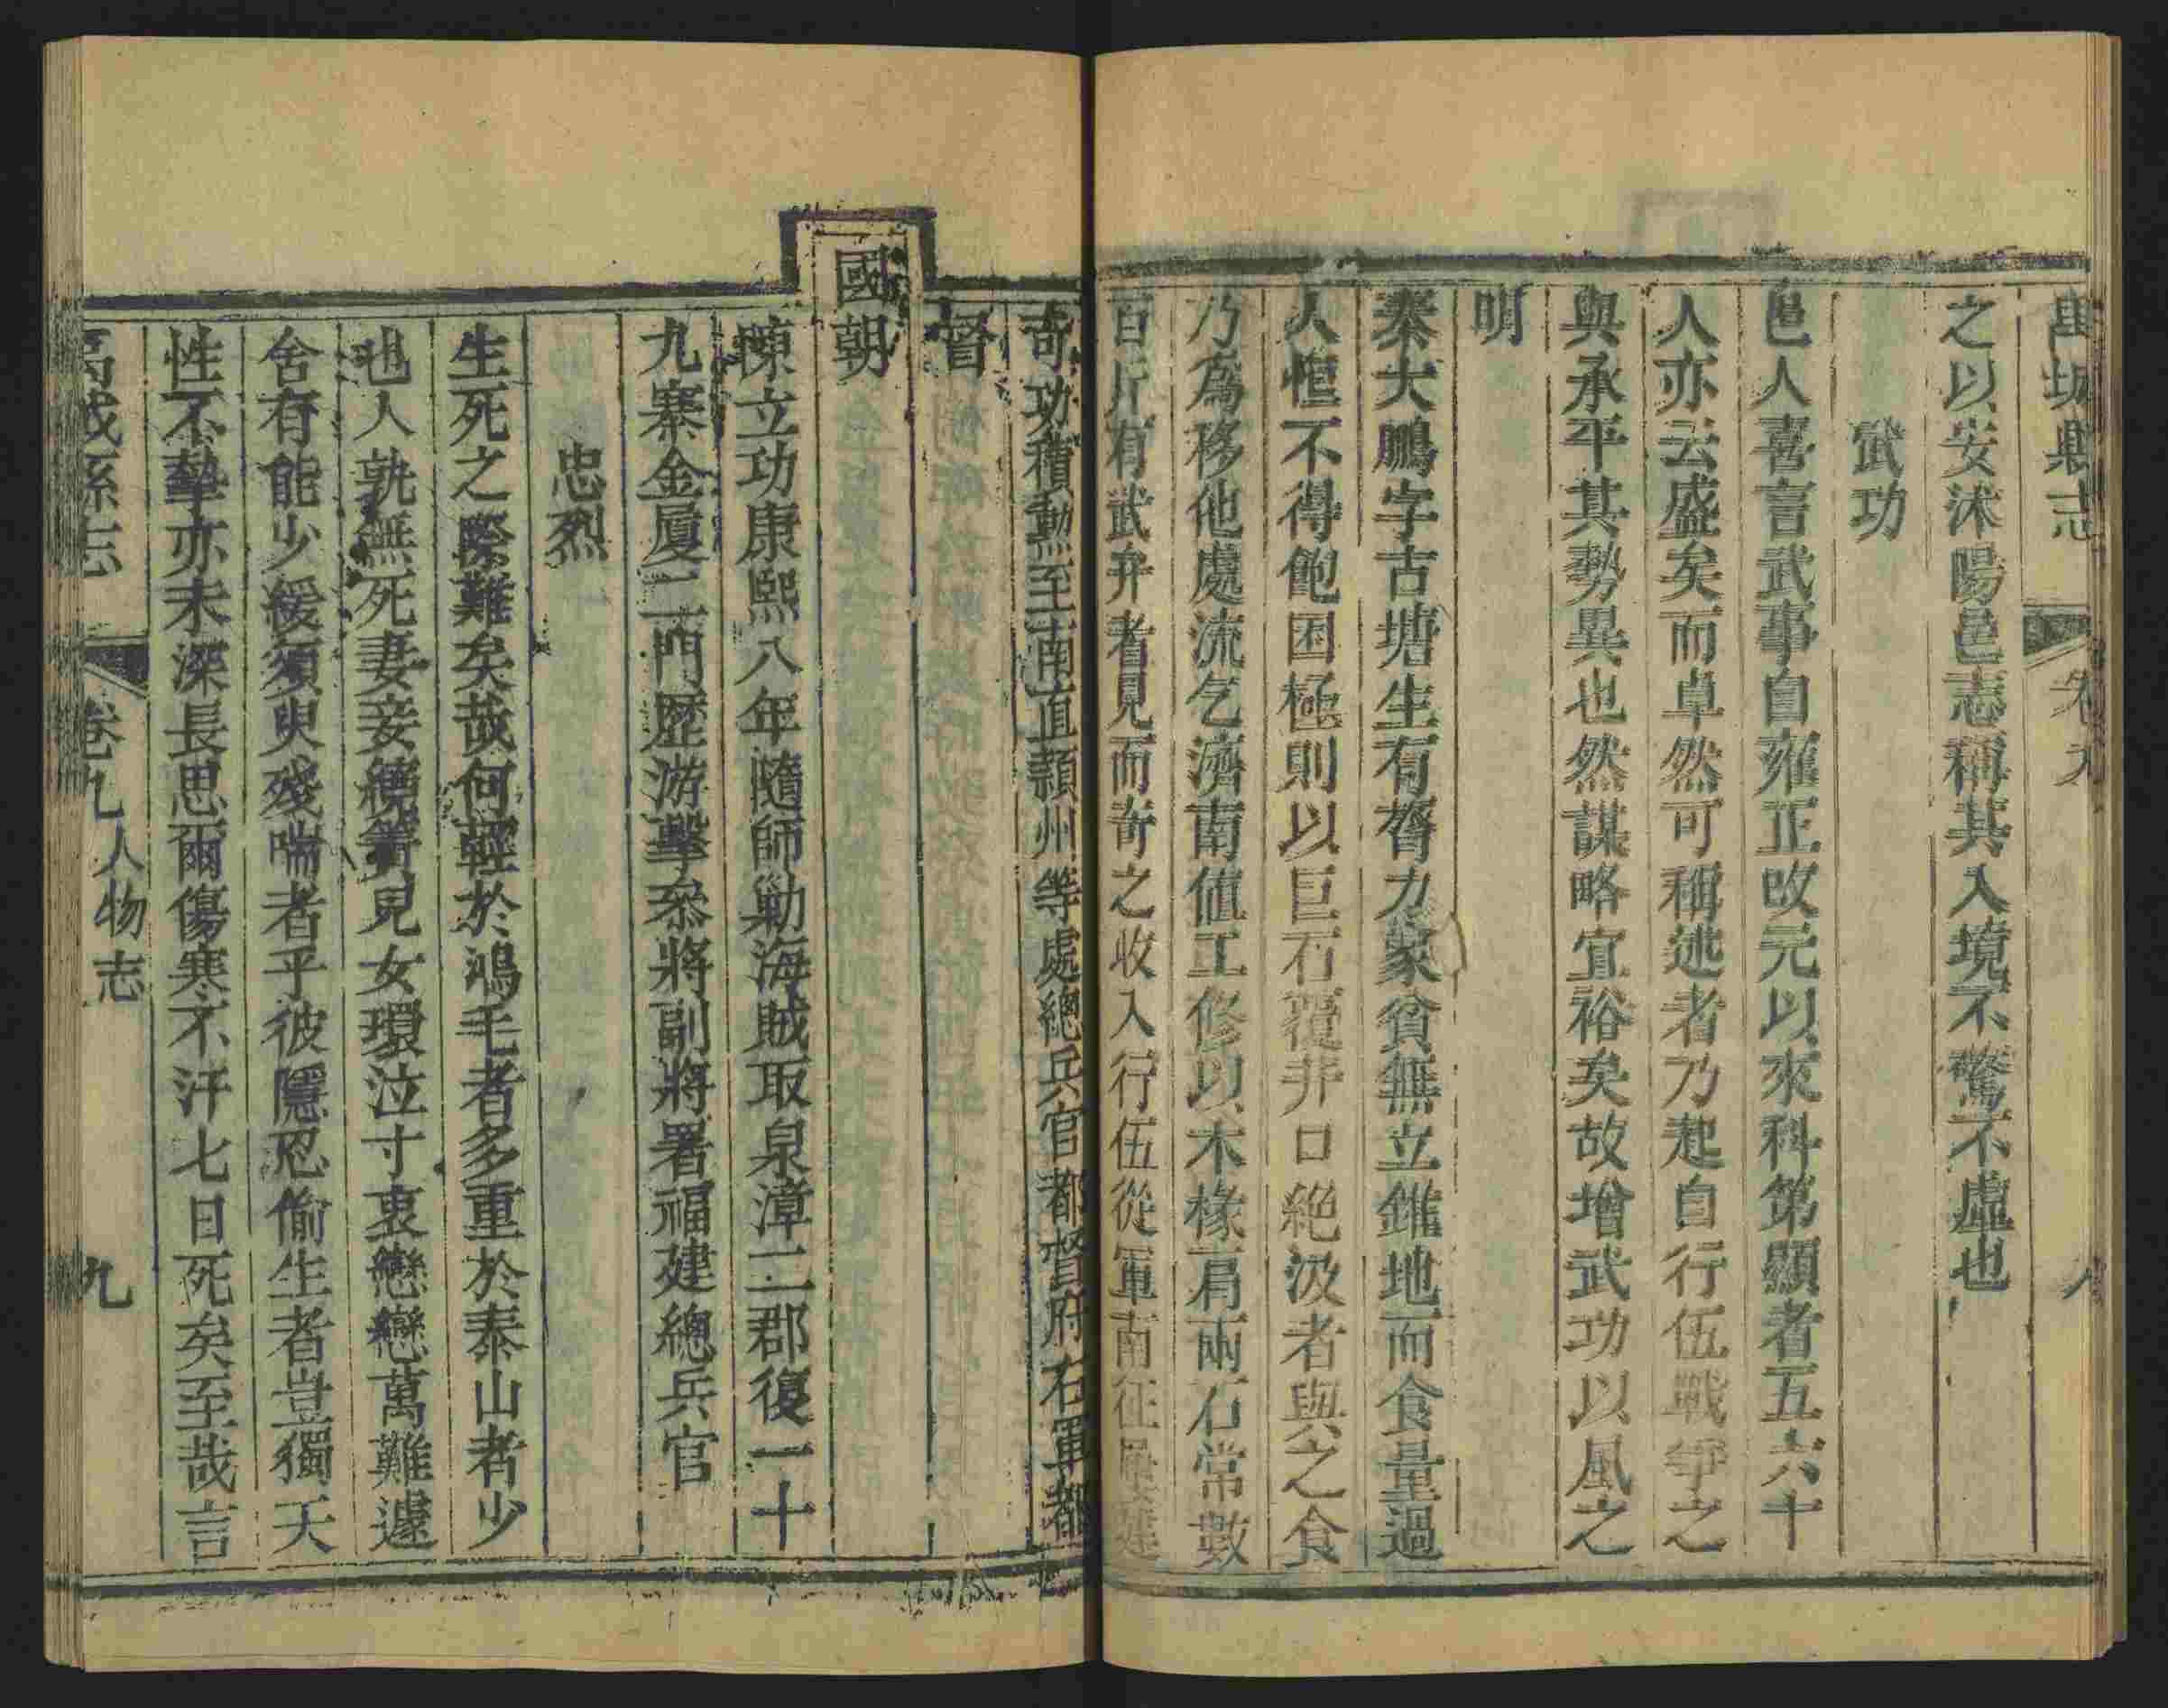 萬城縣志 卷九 八
之以安沭陽邑志稱其入境不驚不虛也
武功
邑人喜言武事自雍正改元以來科第顯者五六十
人亦云盛矣而卓然可稱述者乃起自行伍戰爭之
與承平其勢異也然謀略宜裕矣故增武功以風之
明
秦大鵬字古塘生有膂力家貧無立錐地而食量過
人恒不得飽困極則以巨石覆井口絕汲者與之食
乃為移他處流乞濟南値工修以木椽肩兩石常數
百斤有武弁者見而奇之收入行伍從軍南征屢建
奇功積勳至南直潁州等處總兵官都督府右軍都
督
國朝
陳立功康熙八年隨師勦海賊取泉漳二郡復一十
九寨金厦二門歷游擊叅將副將署福建總兵官
忠烈
生死之際難矣哉何輕於鴻毛者多重於泰山者少
也人孰無死妻妾繞簀見女環泣寸衷戀戀萬難遽
舍有能少緩須臾殘喘者乎彼隱忍偷生者豈獨天
性不摯亦未深長思爾傷寒不汗七日死矣至哉言
縣志 卷九 人物志 九